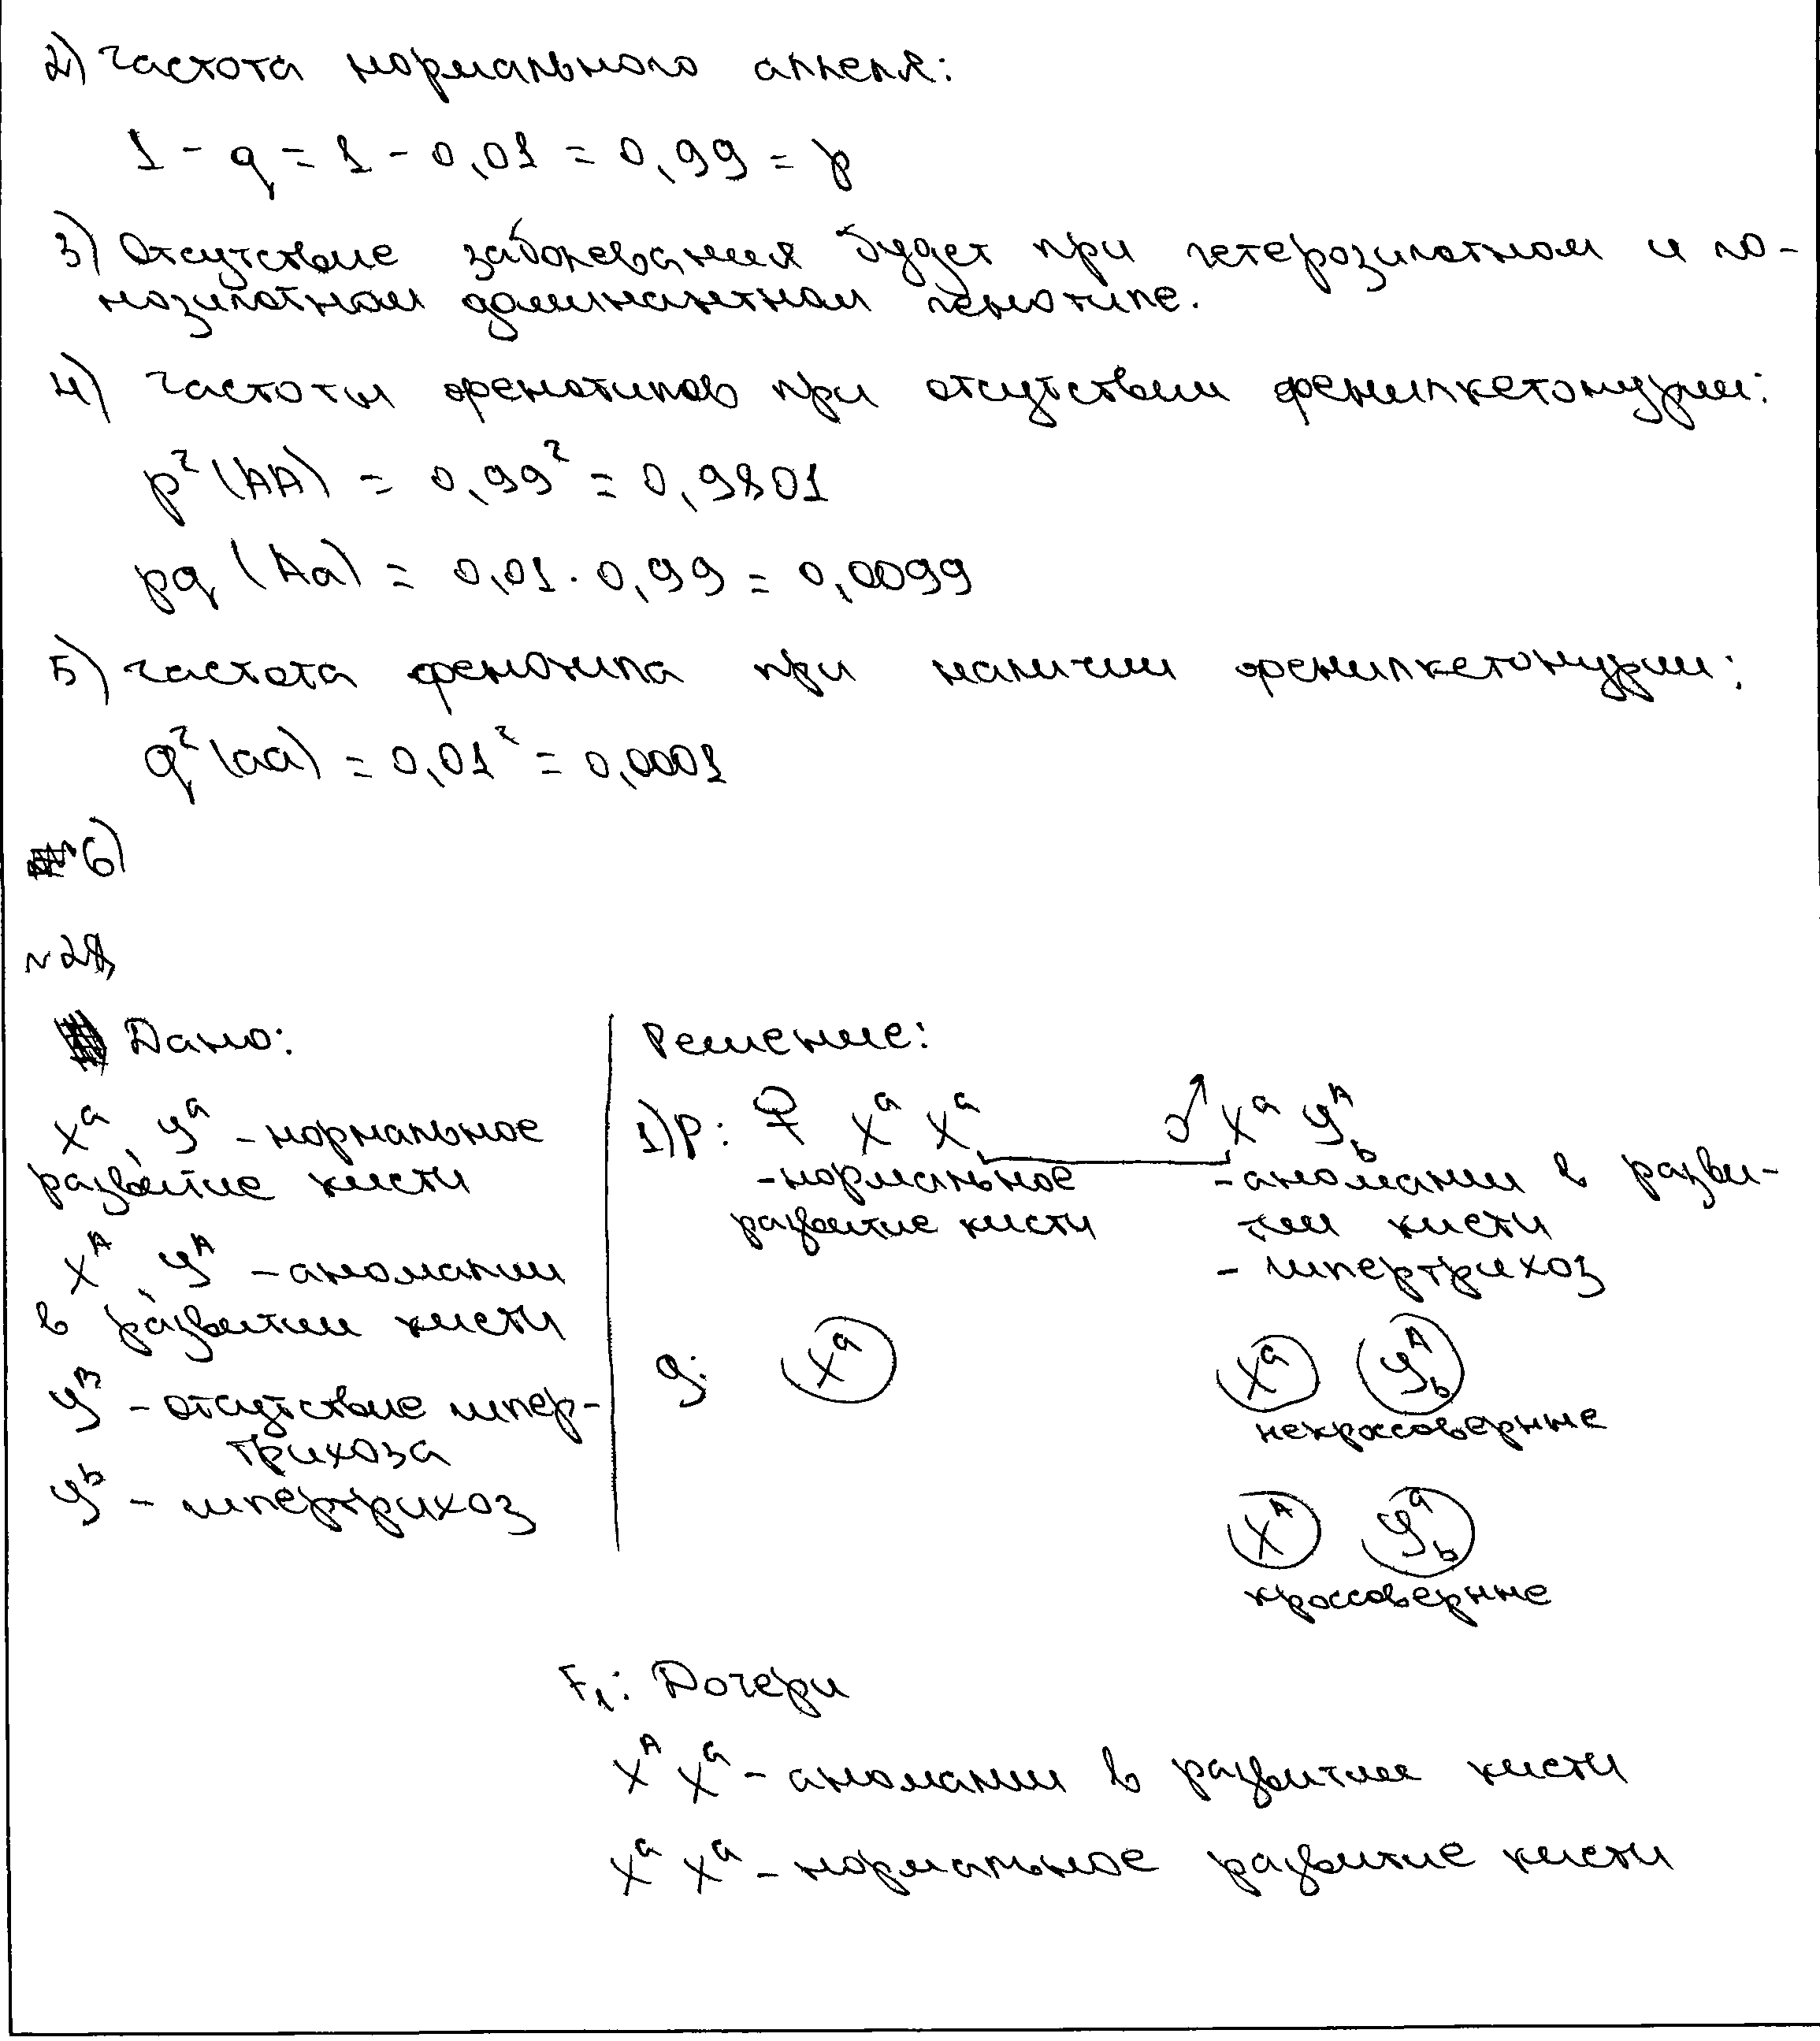 2) Частота нормального аллеля:
1 - q = 1 - 0,01 = 0,99 = p
3) Отсутствие заболевания будет при гетерозиготном и го-
мозиготном доминантном генотипе.
4) Частоты фенотипов при отсутствии фенилкетонурии:
p² (AA) = 0,99² = 0,9801
pq (Aa) = 0,01 · 0,99 = 0,0099
5) Частота фенотипа при наличии фенилкетонурии:
q² (aa) = 0,01² = 0,0001
6)
№28,
Дано:
Xᵃ, Yᵃ - нормальное
развитие кисти
Xᴬ, Yᴬ - аномалии
в развитии кисти
Yᴮ - отсутствие гипер-
трихоза
Yᵇ - гипертрихоз
Решение:
1) P: ♀ Xᵃ Xᵃ ♂ Xᵃ Yᴬb
- нормальное - аномалии в разви-
развитие кисти тии кисти
- гипертрихоз
g: Xᵃ Xᵃ Yᴬb
некроссоверные
Xᴬ Yᵃb
кроссоверные
F₁: Дочери
Xᴬ Xᵃ - аномалии в развитии кисти
Xᵃ Xᵃ - нормальное развитие кисти